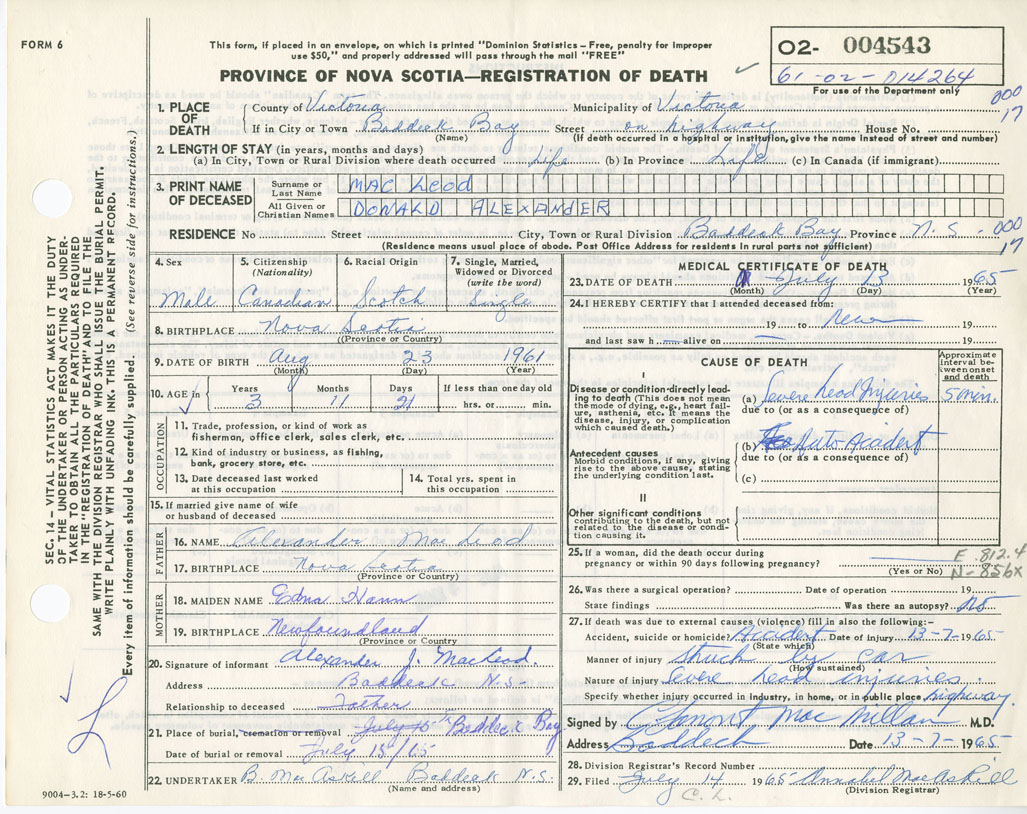 FORM 6
This form, if placed in an envelope, on which is printed "Dominion Statistics – Free, penalty for improper
use $50," and properly addressed will pass through the mail "FREE"
PROVINCE OF NOVA SCOTIA—REGISTRATION OF DEATH
02- 004543
61-02-014264
For use of the Department only
000
17
1. PLACE OF DEATH
County of Victoria Municipality of Victoria
If in City or Town Baddeck Bay Street on highway House No.
(Name) (If death occurred in hospital or institution, give the name instead of street and number)
2. LENGTH OF STAY (in years, months and days)
(a) In City, Town or Rural Division where death occurred Life (b) In Province Life (c) In Canada (if immigrant)
3. PRINT NAME OF DECEASED
Surname or Last Name MAC LEOD
All Given or Christian Names DONALD ALEXANDER
RESIDENCE No Street City, Town or Rural Division Baddeck Bay Province N.S.
000
17
(Residence means usual place of abode. Post Office Address for residents in rural parts not sufficient)
4. Sex Male
5. Citizenship (Nationality) Canadian
6. Racial Origin Scotch
7. Single, Married, Widowed or Divorced (write the word) Single
8. BIRTHPLACE Nova Scotia
(Province or Country)
9. DATE OF BIRTH Aug 23 1961
(Month) (Day) (Year)
10. AGE in Years 3 Months 11 Days 21 If less than one day old hrs. or min.
OCCUPATION
11. Trade, profession, or kind of work as
fisherman, office clerk, sales clerk, etc.
12. Kind of industry or business, as fishing,
bank, grocery store, etc.
13. Date deceased last worked
at this occupation
14. Total yrs. spent in
this occupation
15. If married give name of wife
or husband of deceased
FATHER
16. NAME Alexander MacLeod
17. BIRTHPLACE Nova Scotia
(Province or Country)
MOTHER
18. MAIDEN NAME Edna Hann
19. BIRTHPLACE Newfoundland
(Province or Country)
20. Signature of informant Alexander J. MacLeod.
Address Baddeck N.S.
Relationship to deceased Father
21. Place of burial, cremation or removal Baddeck Bay
Date of burial or removal July 15/65
22. UNDERTAKER B. MacAskill Baddeck N.S.
(Name and address)
9004–3.2: 18-5-60
MEDICAL CERTIFICATE OF DEATH
23. DATE OF DEATH July 13 1965
(Month) (Day) (Year)
24. I HEREBY CERTIFY that I attended deceased from:
19 to 19
and last saw h alive on 19
CAUSE OF DEATH
Approximate interval between onset and death
I
Disease or condition directly leading to death (This does not mean the mode of dying, e.g., heart failure, asthenia, etc. It means the disease, injury, or complication which caused death.)
(a) Severe head injuries 5 min.
due to (or as a consequence of)
(b) Auto Accident
due to (or as a consequence of)
Antecedent causes
Morbid conditions, if any, giving rise to the above cause, stating the underlying condition last.
(c)
II
Other significant conditions
contributing to the death, but not related to the disease or condition causing it.
25. If a woman, did the death occur during
pregnancy or within 90 days following pregnancy?
(Yes or No)
E 812.4
N-856x
26. Was there a surgical operation? Date of operation 19
State findings Was there an autopsy? No
27. If death was due to external causes (violence) fill in also the following:–
Accident, suicide or homicide? Accident Date of injury 13-7-1965
(State which)
Manner of injury struck by car
(How sustained)
Nature of injury Severe head injuries.
Specify whether injury occurred in industry, in home, or in public place highway.
Signed by C. Lamont MacMillan M.D.
Address Baddeck Date 13-7-1965
28. Division Registrar's Record Number
29. Filed July 14 1965 Annabel MacAskill
(Division Registrar)
C.L.
SEC. 14 – VITAL STATISTICS ACT MAKES IT THE DUTY
OF THE UNDERTAKER OR PERSON ACTING AS UNDER-
TAKER TO OBTAIN ALL THE PARTICULARS REQUIRED
IN THE "REGISTRATION OF DEATH" AND TO FILE THE
SAME WITH THE DIVISION REGISTRAR WHO SHALL ISSUE THE BURIAL PERMIT.
WRITE PLAINLY WITH UNFADING INK. THIS IS A PERMANENT RECORD.
Every item of information should be carefully supplied. (See reverse side for instructions.)